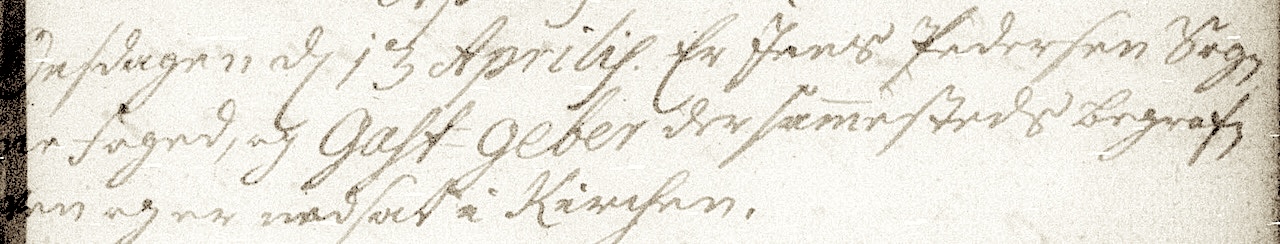 Onsdagen d 13 Aprilis. Er Jens Pedersen Sogn
Foged, og Gast-geber der sammesteds begrafv
en og er nedsat i Kirchen.